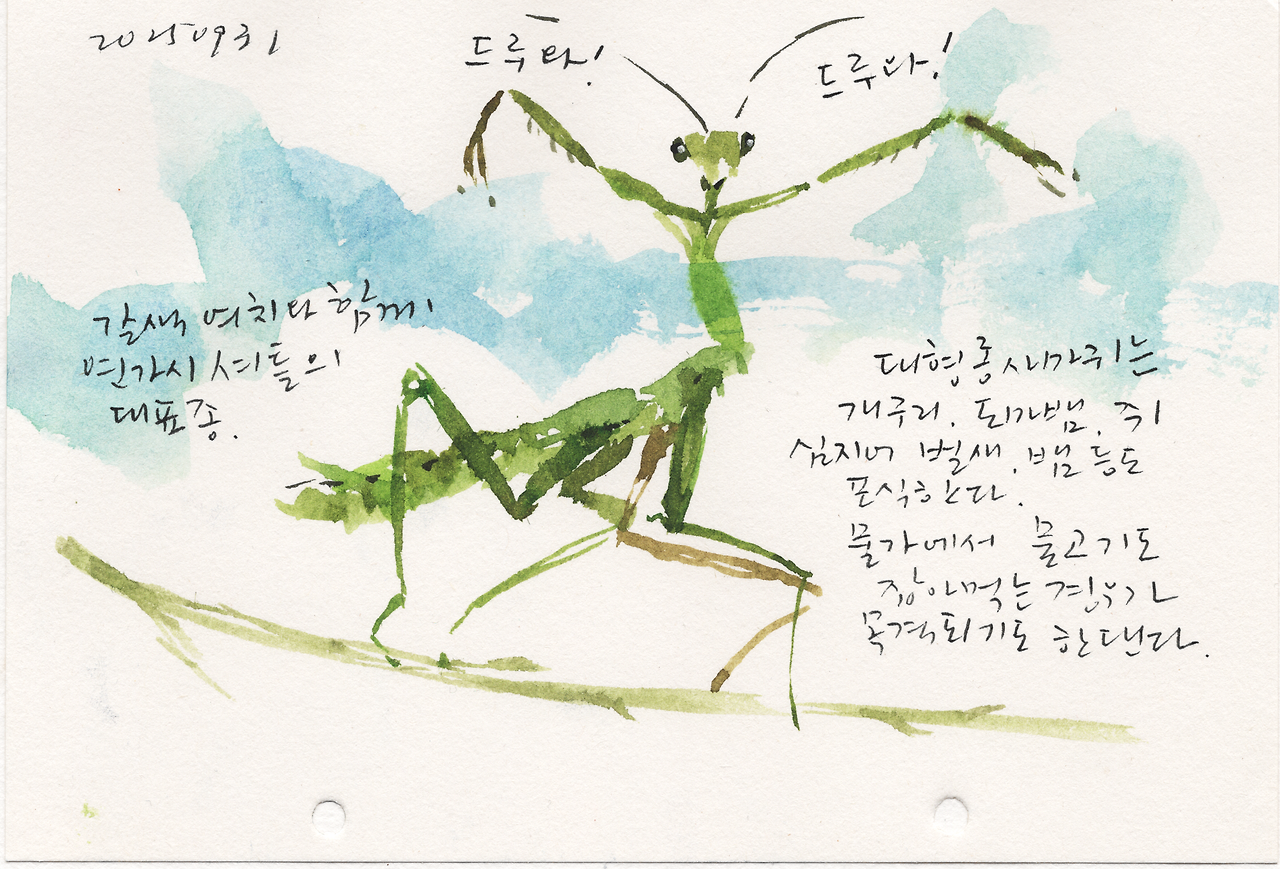 20250931
드루와!
드루와!
갈색 여치와 함께
연가시 셔틀의
대표종.
대형종 사마귀는
개구리. 도마뱀. 쥐
심지어 벌새. 뱀 등도
포식한다.
물가에서 물고기도
잡아먹는 경우가
목격되기도 한댄다.